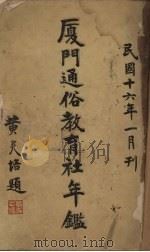 民國十六年一月刊
廈門通俗教育社年鑑
黃天培題